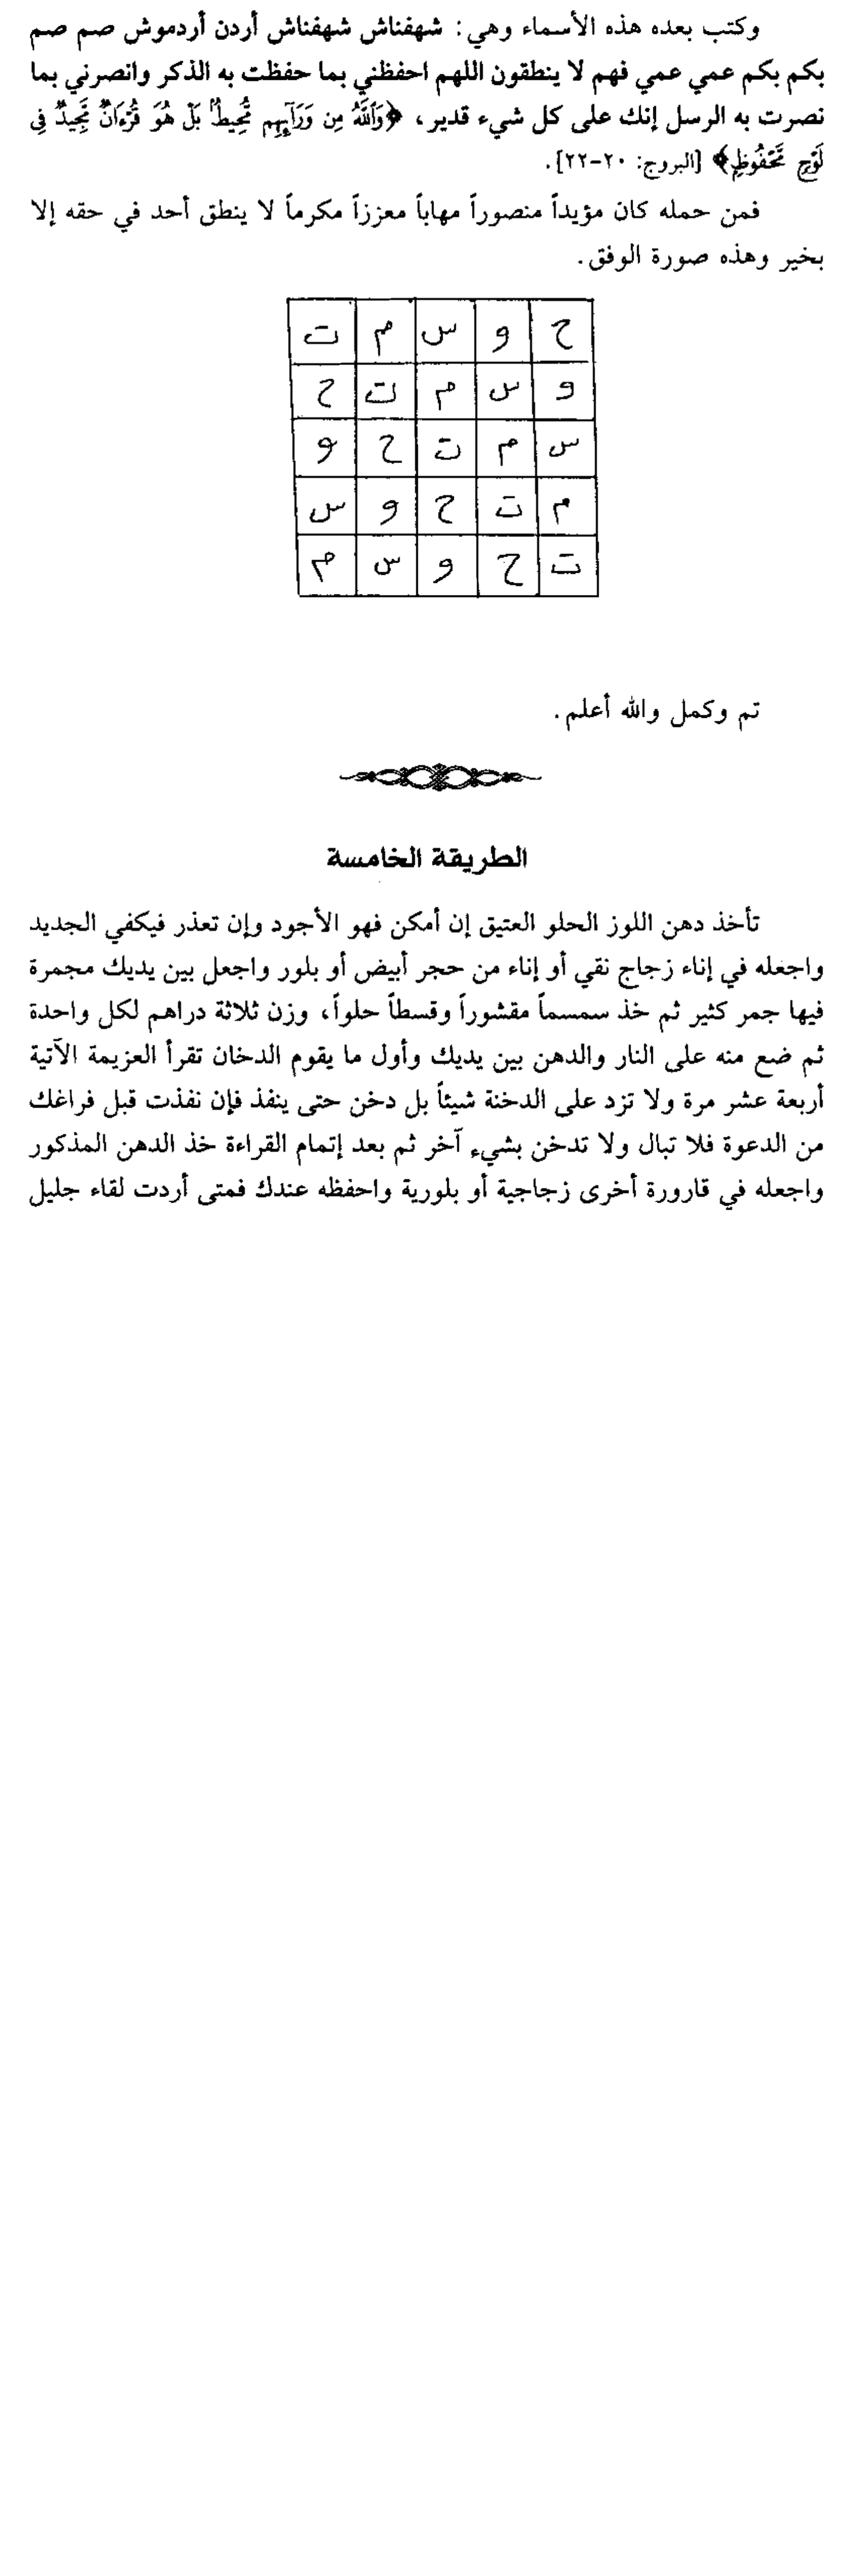 وكتب بعده هذه الأسماء وهي: شهفناش شهفناش أردن أردموش صم صم
بكم بكم عمي عمي فهم لا ينطقون اللهم احفظني بما حفظت به الذكر وانصرني بما
نصرت به الرسل إنك على كل شيء قدير، ﴿وَٱللَّهُ مِن وَرَآئِهِم مُّحِيطٌۢ بَلْ هُوَ قُرْءَانٌ مَّجِيدٌ فِى
لَوْحٍ مَّحْفُوظٍۭ﴾ [البروج: ٢٠-٢٢].
فمن حمله كان مؤيداً منصوراً مهاباً معززاً مكرماً لا ينطق أحد في حقه إلا
بخير وهذه صورة الوفق.
ح و س م ت
و س م ت ح
س م ت ح و
م ت ح و س
ت ح و س م
تم وكمل والله أعلم.
الطريقة الخامسة
تأخذ دهن اللوز الحلو العتيق إن أمكن فهو الأجود وإن تعذر فيكفي الجديد
واجعله في إناء زجاج نقي أو إناء من حجر أبيض أو بلور واجعل بين يديك مجمرة
فيها جمر كثير ثم خذ سمسماً مقشوراً وقسطاً حلواً، وزن ثلاثة دراهم لكل واحدة
ثم ضع منه على النار والدهن بين يديك وأول ما يقوم الدخان تقرأ العزيمة الآتية
أربعة عشر مرة ولا تزد على الدخنة شيئاً بل دخن حتى ينفذ فإن نفذت قبل فراغك
من الدعوة فلا تبال ولا تدخن بشيء آخر ثم بعد إتمام القراءة خذ الدهن المذكور
واجعله في قارورة أخرى زجاجية أو بلورية واحفظه عندك فمتى أردت لقاء جليل